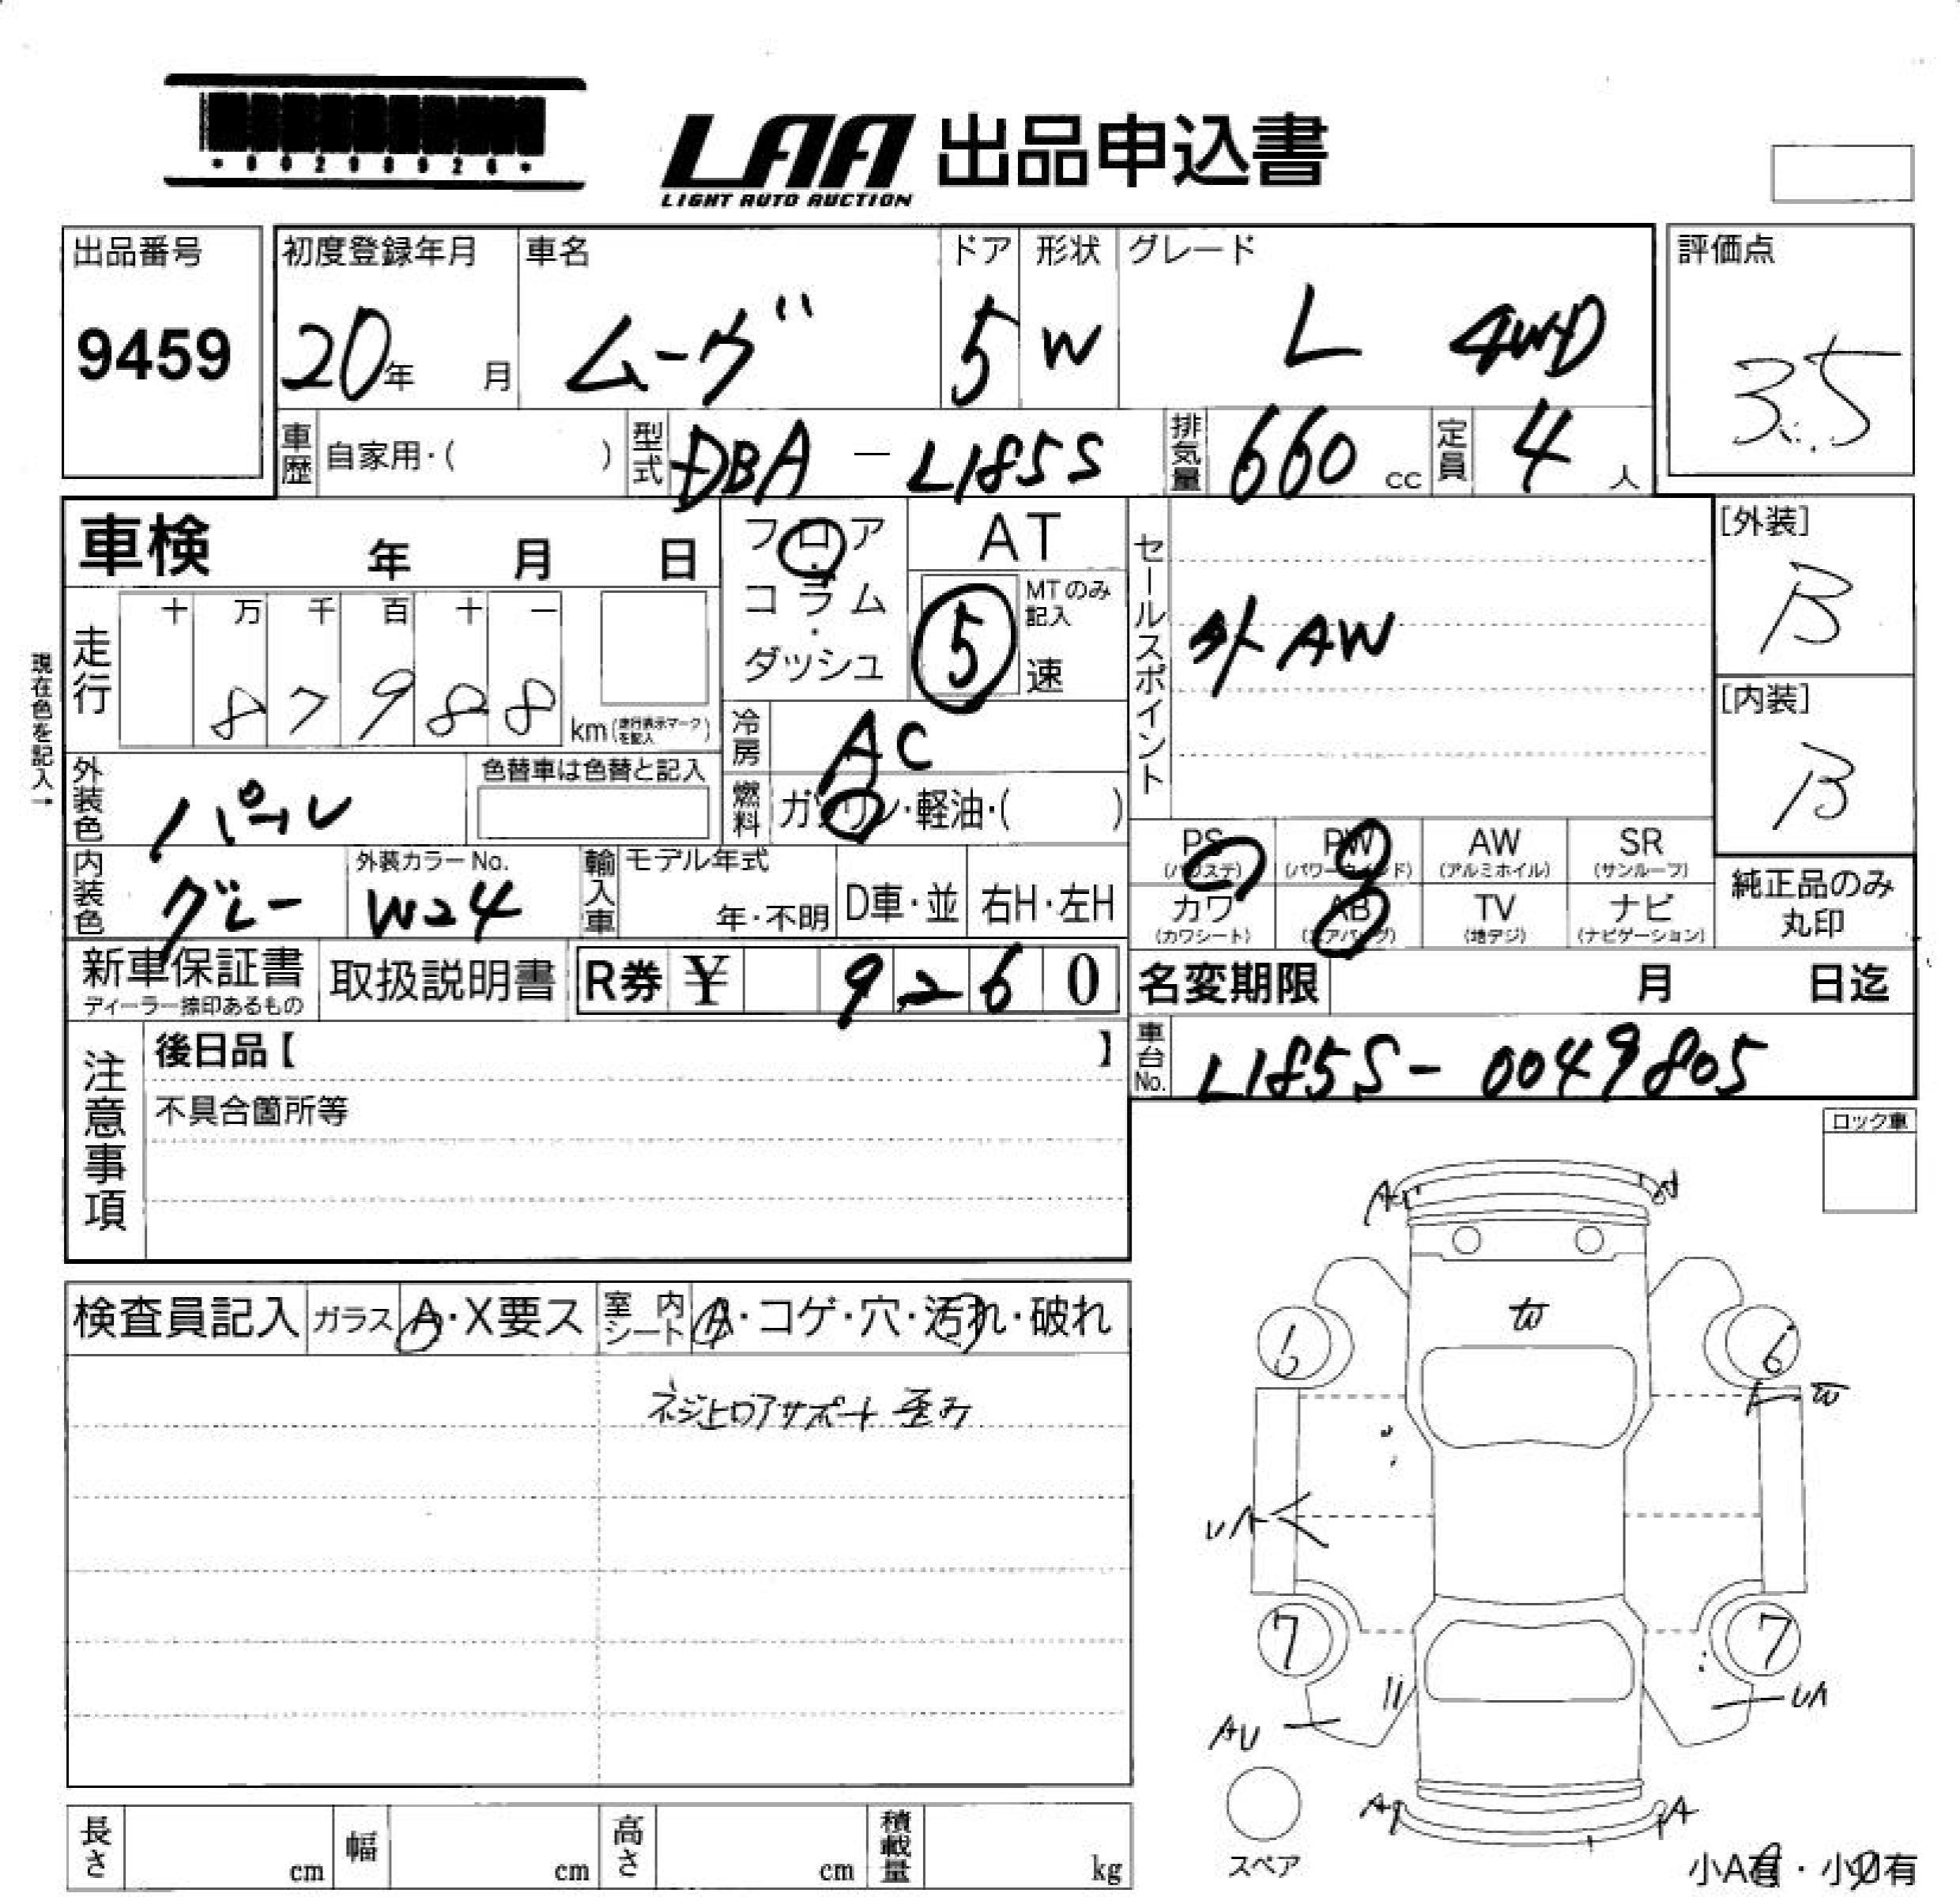 LAA 出品申込書
LIGHT AUTO AUCTION
出品番号
9459
初度登録年月
20年 月
車名
ムーヴ
ドア
5
形状
W
グレード
L 4WD
評価点
3.5
車歴 自家用・( )
型式 DBA - L185S
排気量 660 cc
定員 4 人
車検 年 月 日
フロア・コラム・ダッシュ
AT
MTのみ記入
5 速
セールスポイント
外AW
[外装]
B
[内装]
B
現在色を記入→
走行
十 万 千 百 十 一
8 7 9 8 8
km(走行表示マークを記入)
冷房 AC
燃料 ガソリン・軽油・( )
外装色 パール
色替車は色替と記入
内装色 グレー
外装カラーNo.
W24
輸入車 モデル年式
年・不明
D車・並
右H・左H
PS (パワステ)
PW (パワーウインド)
AW (アルミホイル)
SR (サンルーフ)
カワ (カワシート)
AB (エアバッグ)
TV (地デジ)
ナビ (ナビゲーション)
純正品のみ
丸印
新車保証書
ディーラー捺印あるもの
取扱説明書
R券 ¥ 9260
名変期限 月 日迄
車台No. L185S - 0049805
注意事項
後日品【 】
不具合箇所等
ロック車
検査員記入
ガラス A・X要ス
室内シート A・コゲ・穴・汚れ・破れ
ネジ止ロアサポート 歪み
A
W
6 6
W
UA
7 7
UA
AU
A A
スペア
小A有・小U有
長さ cm
幅 cm
高さ cm
積載量 kg